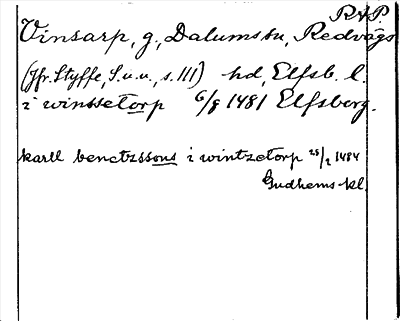 R.A.P.
Vinsarp, g, Dalums sn, Redvägs
(Jfr. Styffe, S.u.u., s. 111) hd, Elfsb. l.
i winssetorp 6/8 1481 Elfsborg.
karll benctzssons i wintzetorp 25/2 1484
Gudhems kl.